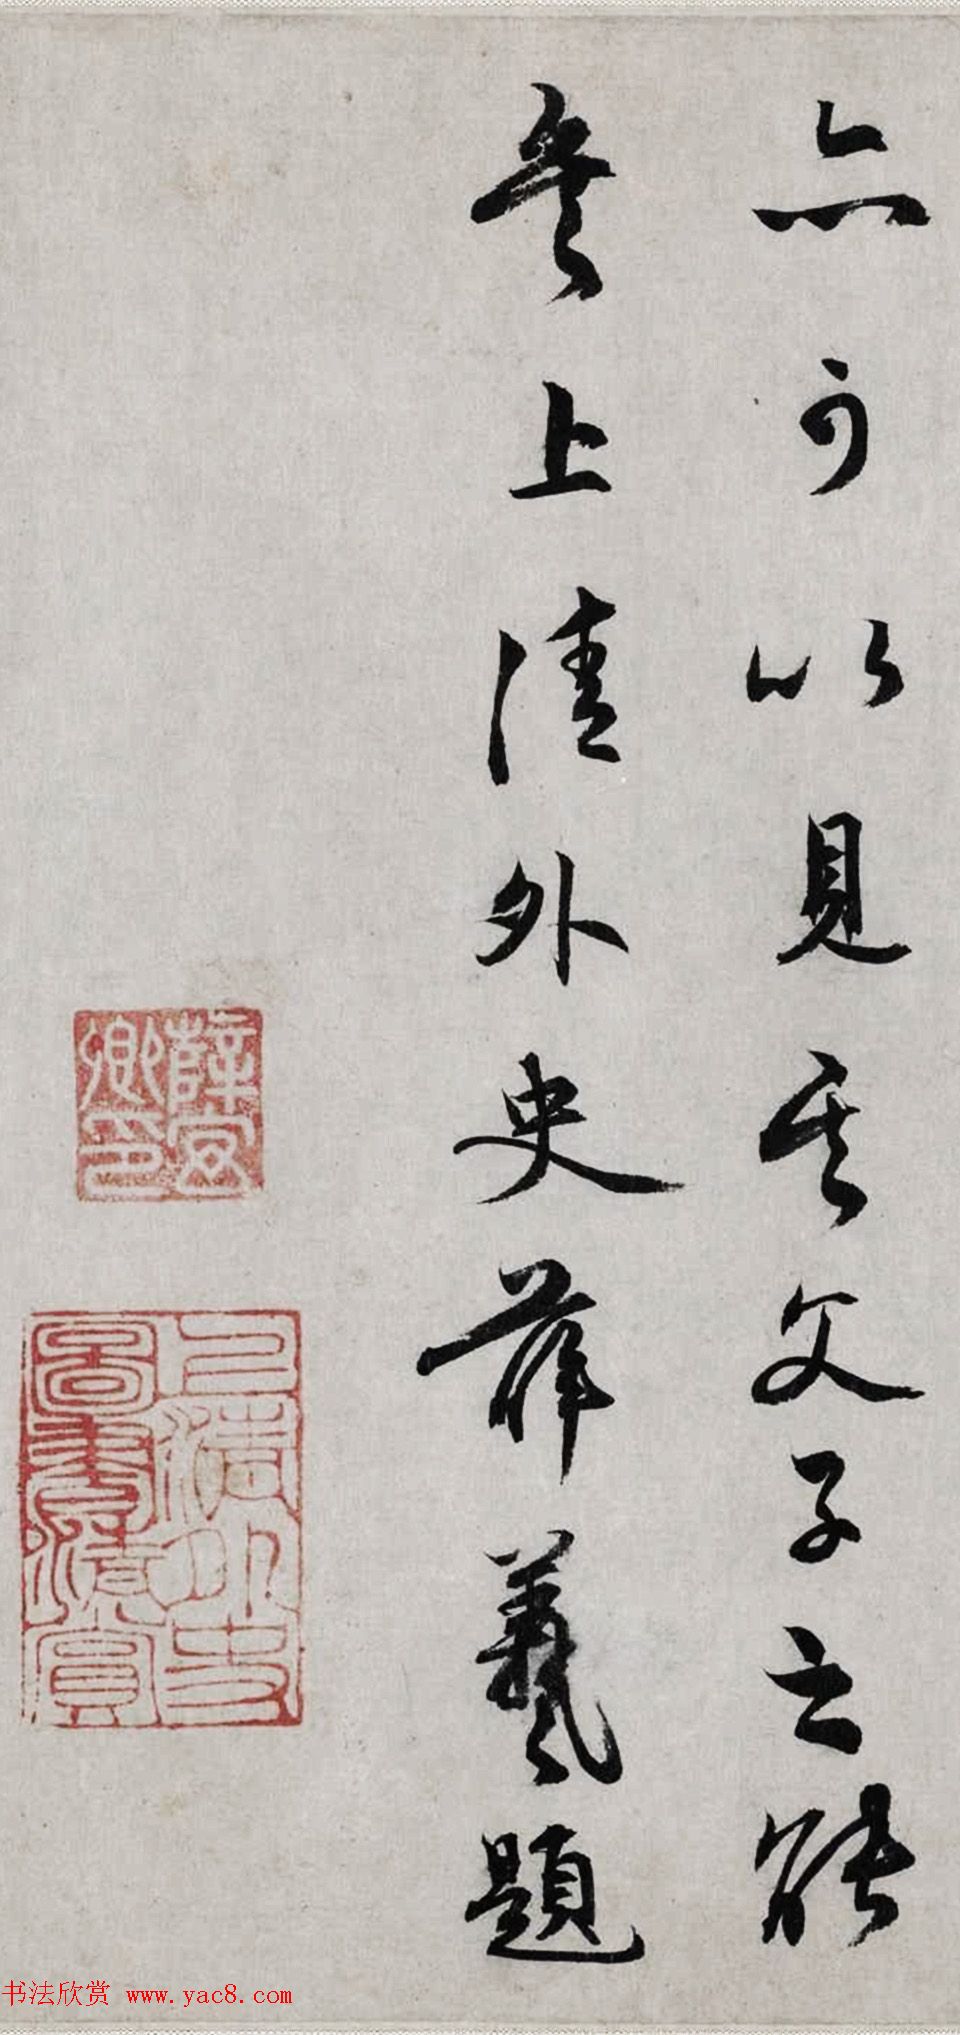 亦可以見其父子之能
矣上清外史薛羲題
薛宜
卿印
上清外史
圖書清賞
书法欣赏 www.yac8.com